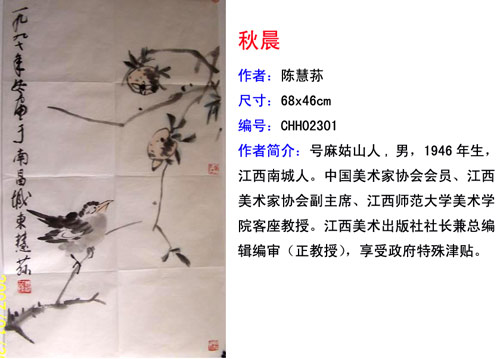 秋晨
作者：陈慧荪
尺寸：68x46cm
编号：CHH02301
作者简介：号麻姑山人，男，1946 年生，
江西南城人。中国美术家协会会员、江西
美术家协会副主席、江西师范大学美术学
院客座教授。江西美术出版社社长兼总编
辑编审（正教授），享受政府特殊津贴。
一九九七年冬月画于南昌城东慧荪